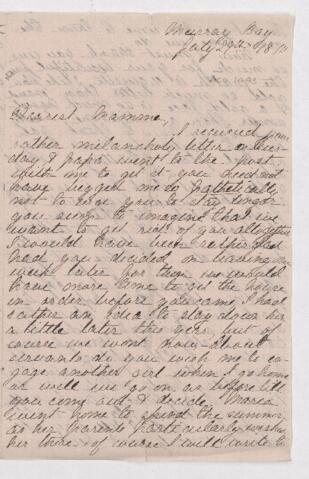 Murray Bay
July 29th 18
Dearest Mamma,
I received your
rather melancholy letter on
day & papa went to the post
with me to get it you need not
have begged me so pathetically
not to you to stay longer
you seem to imagine that we
want to get rid of you altogether
I would have been rather glad
had you decided on leaving a
week later for then we would
have more time to get the house
in order before you came, I had
rather an idea to stay down here
a little later this year, but of
course we wont now. About
servants do you wish me to en-
gage another girl when I go home
or will we go on as before till
you come out & decide, Maria
went home to spend the summer
as her parents particularly wished
her there, of course I will write to